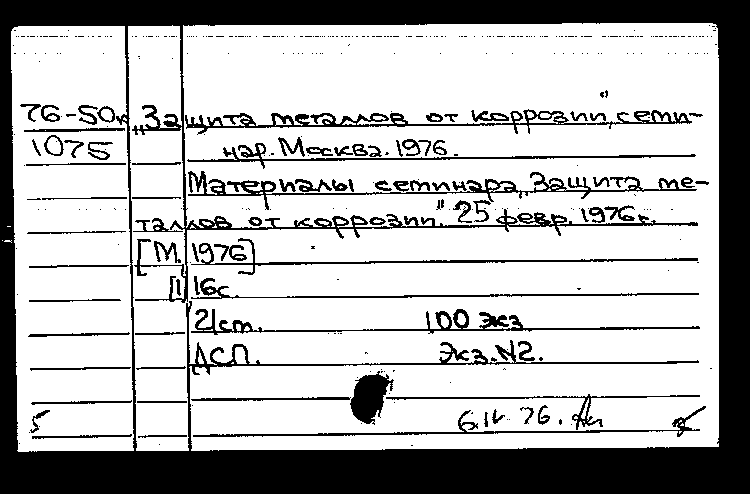 76-50к „Защита металлов от коррозии", семи-
1075 нар. Москва. 1976.
Материалы семинара „Защита ме-
таллов от коррозии." 25 февр. 1976г.
[М. 1976]
[1] 16с.
21ст. 100 экз
ДСП. Экз. N2.
5 6.IV 76.